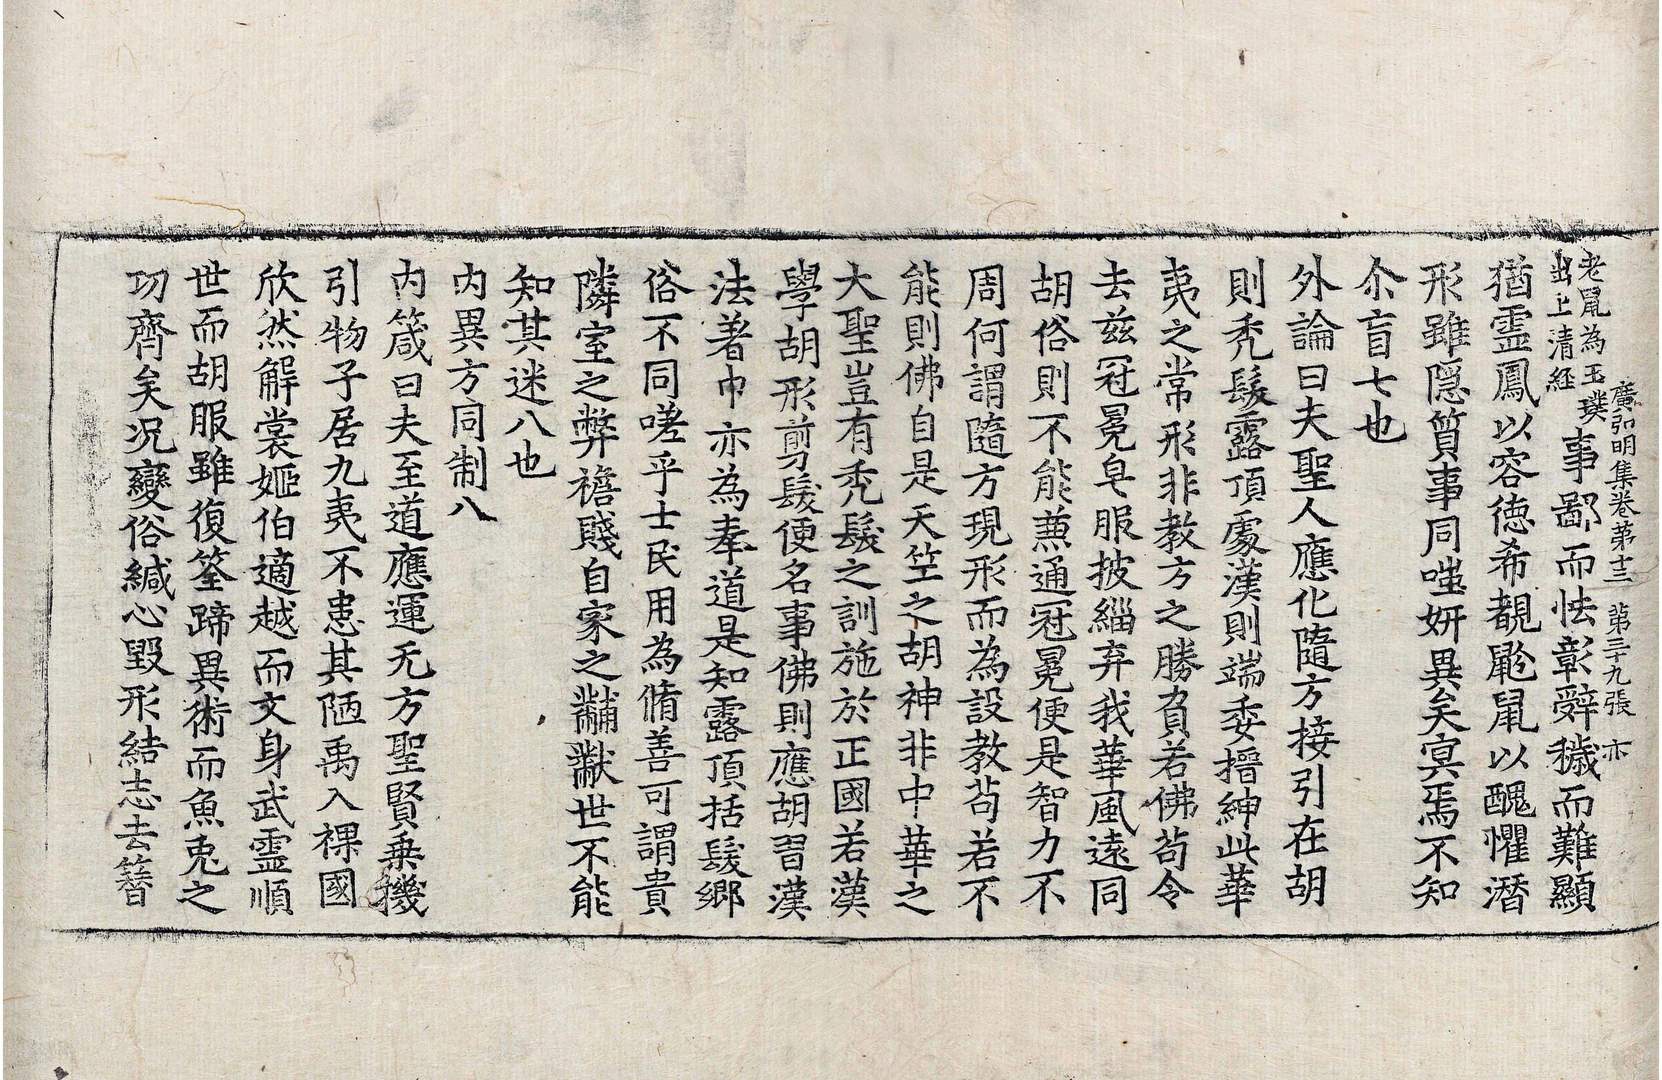 廣弘明集卷第十三 第三十九張 亦
老鼠為玉璞
出上清經
事鄙而怯彰辭穢而難顯
猶靈鳳以容德希覩鼵鼠以醜懼潛
形雖隱質事同嗤妍異矣寘焉不知
尒盲七也
外論曰夫聖人應化隨方接引在胡
則禿髮露頂處漢則端委搢紳此華
夷之常形非教方之勝負若佛苟令
去茲冠冕皁服披緇弃我華風遠同
胡俗則不能兼通冠冕便是智力不
周何謂隨方現形而為設教苟若不
能則佛自是天竺之胡神非中華之
大聖豈有禿髮之訓施於正國若漢
學胡形剪髮便名事佛則應胡習漢
法著巾亦為奉道是知露頂括髮鄉
俗不同嗟乎士民用為脩善可謂貴
隣室之弊襜賤自家之黼黻世不能
知其迷八也
內異方同制八
內箴曰夫至道應運无方聖賢乗機
引物子居九夷不恚其陋禹入裸國
欣然解裳姬伯適越而文身武靈順
世而胡服雖復筌蹄異術而魚兎之
功齊矣况變俗緘心毀形結志去簪